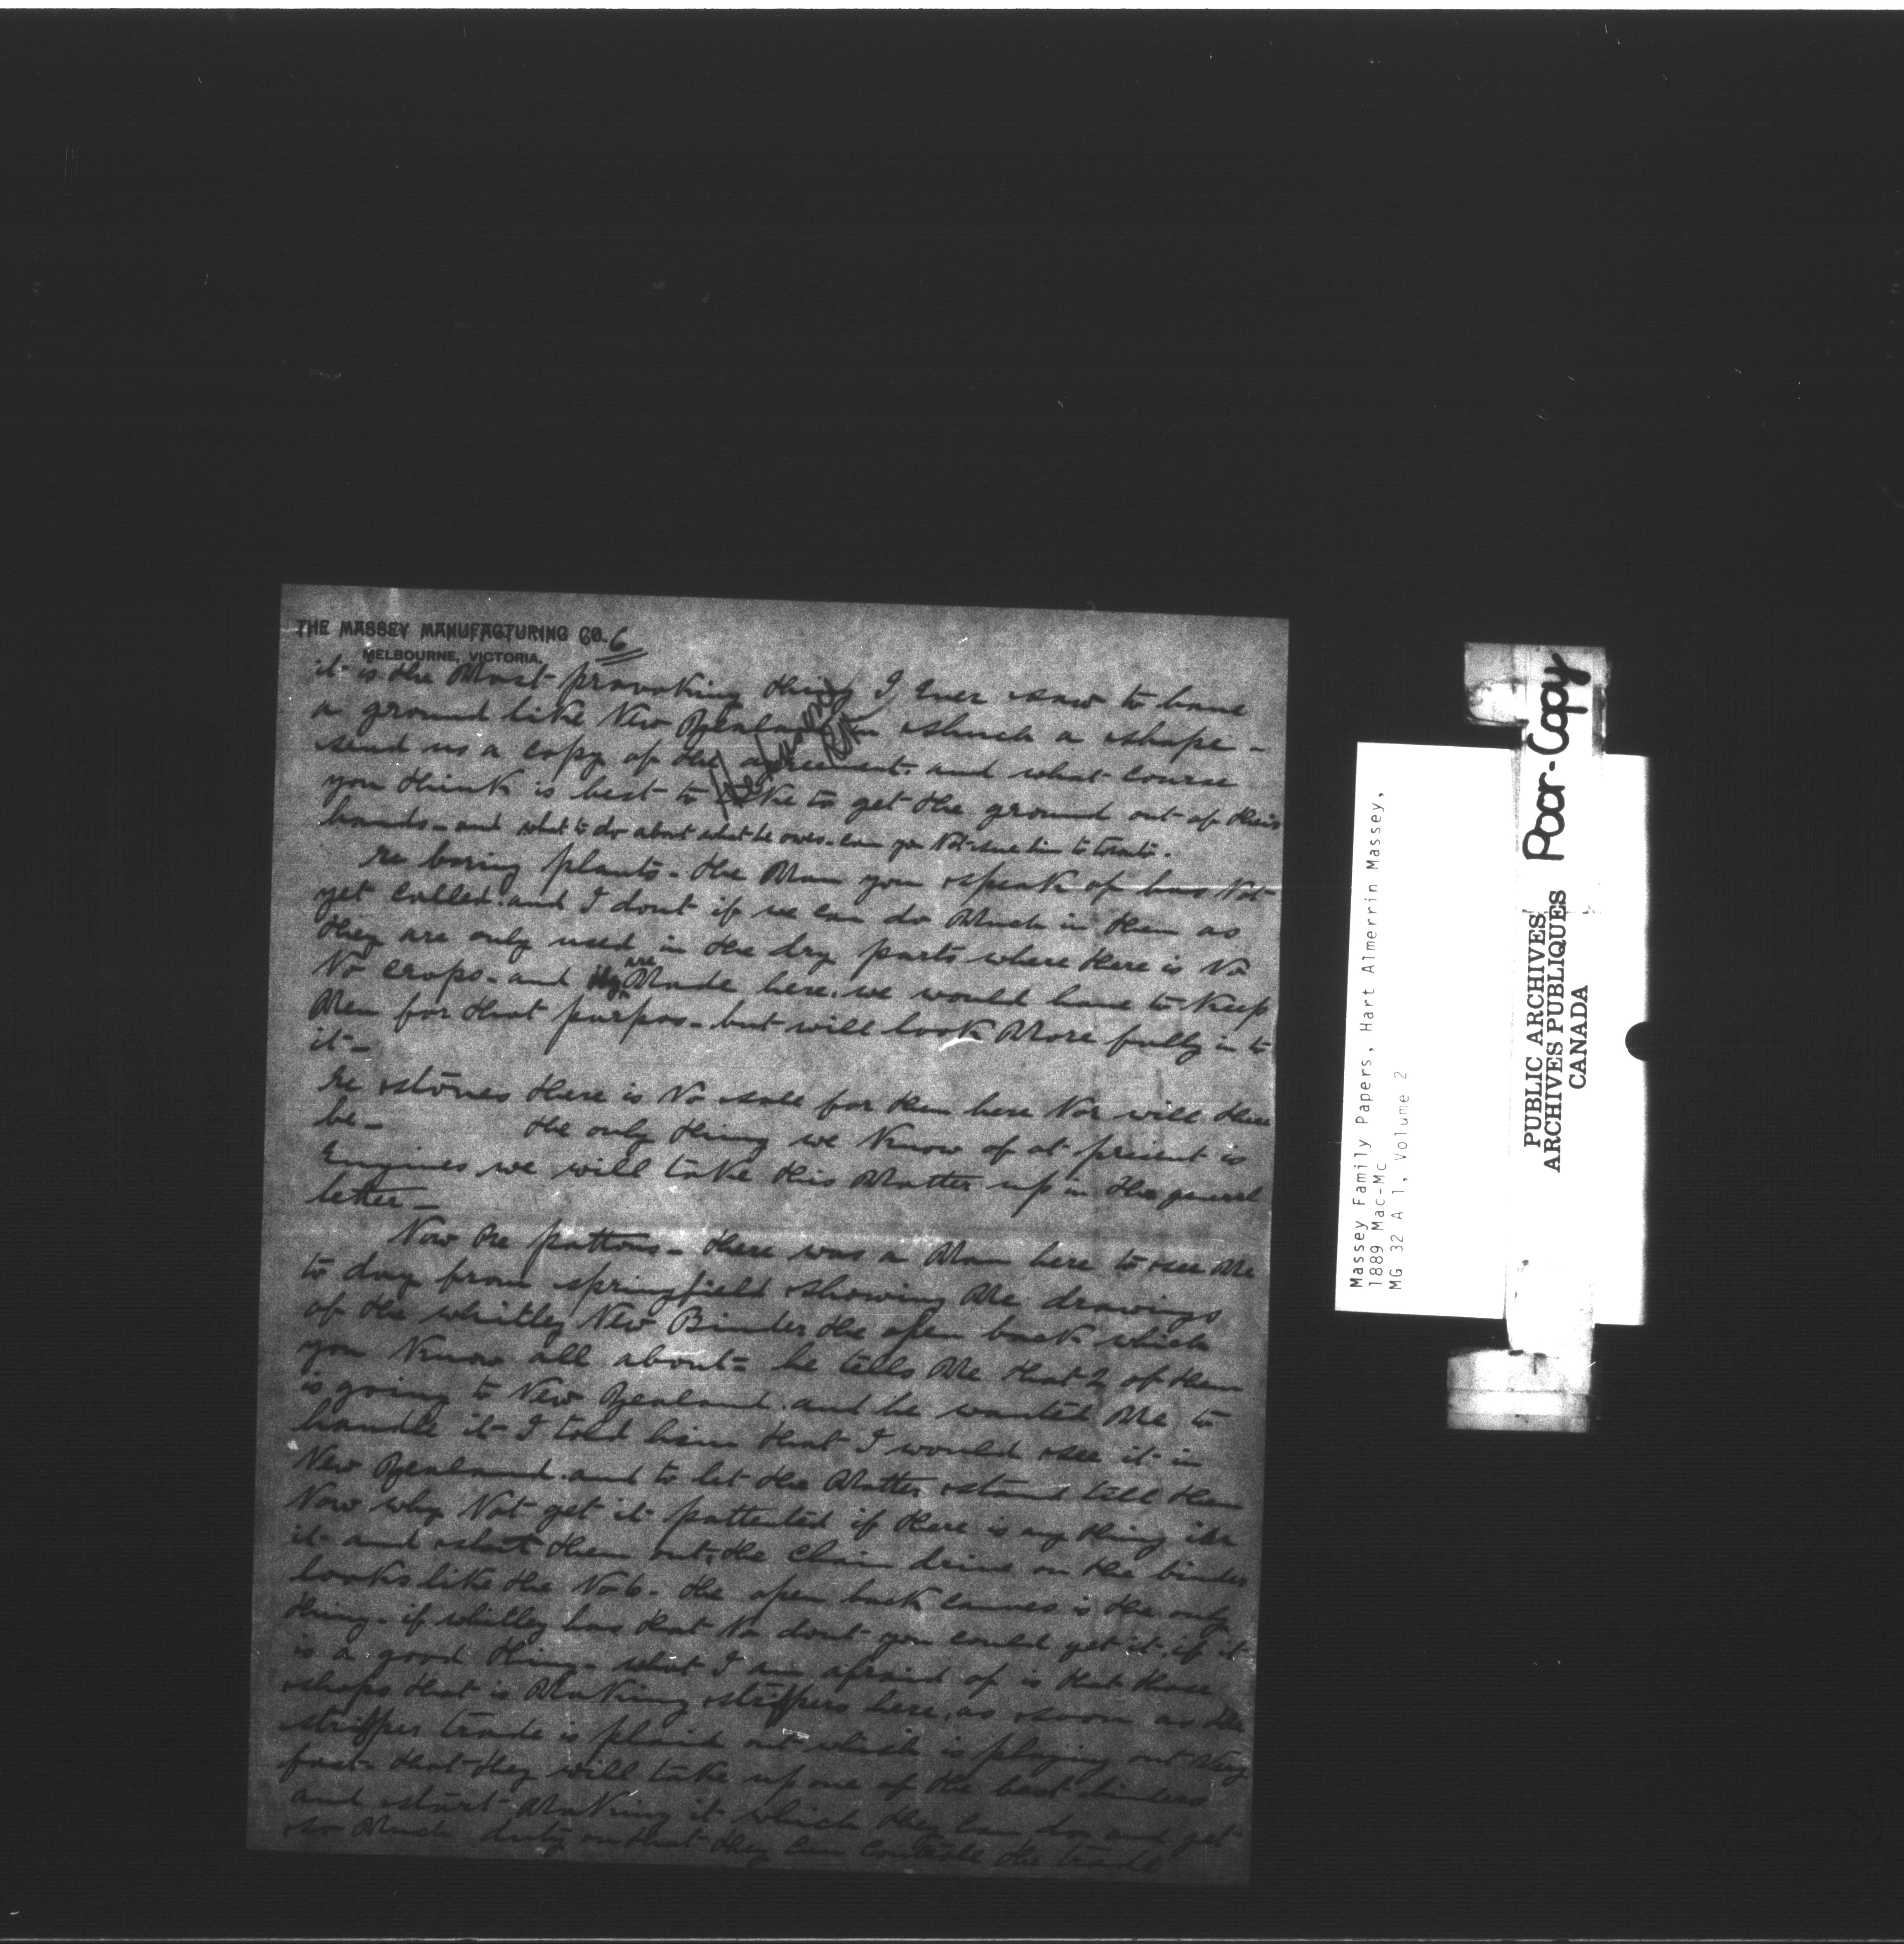 THE MASSEY MANUFACTURING CO. 6
MELBOURNE, VICTORIA.
it is the Most provoking thing I Ever saw to have
a ground like New Zealand in shuch a shape -
send us a copy of the agreement. and what course
you think is best to take to get the ground out of their
hands - and what to do about what he owes. can you Not sue him to
re boring plants - the Man you speak of has Not
yet called. and I dont if we can do Much in them as
they are only used in the dry parts where there is No
No crops - and they are Made here. we would have to Keep
Men for that purpos - but will look More fully in to
it -
re stones there is No sale for them here Nor will there
be - the only thing we Know of at present is
Engines we will take this Matter up in the general
letter -
Now Re pattons - there was a Man here to see Me
to day from springfield showing Me drawings
of the whitley New Binder the open back which
you Know all about = he tells Me that 2 of them
is going to New Zealand. and he wanted Me to
handle it - I told him that I would see it in
New Zealand. and to let the Matter stand till then
Now why Not get it pattented if there is any thing in
it and shut them out. the Chain drive on the binder
looks like the No 6 - the open back canves is the only
thing - if whitley has that No dout you could get it. if it
is a good thing - what I am afraid of is that those
shops that is Making strippers here, as soon as the
stripper trade is plaid out which is playing out Very
fast - that they will take up one of the best binders
and start Making it which they can do and get
so Much duty on that they can controle the trade
Poor-Copy
PUBLIC ARCHIVES
ARCHIVES PUBLIQUES
CANADA
Massey Family Papers, Hart Almerrin Massey,
1889 Mac-Mc
MG 32 A 1, Volume 2